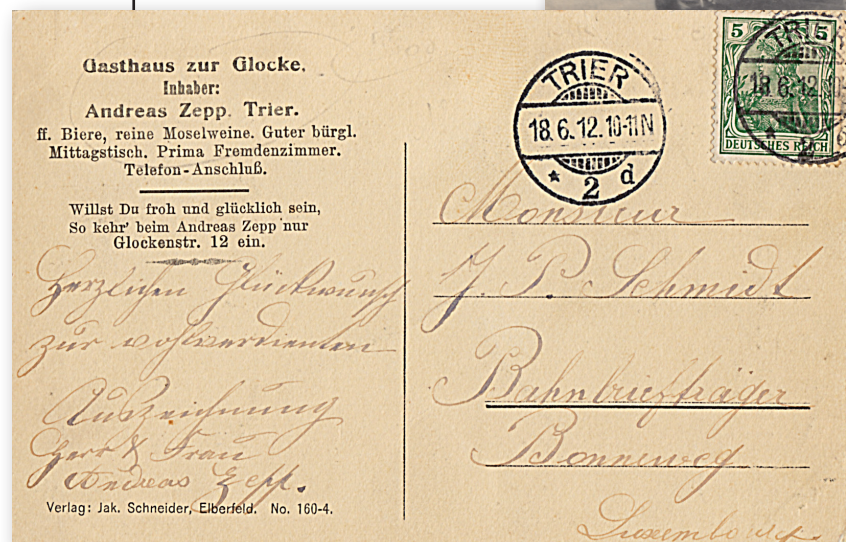 Gasthaus zur Glocke.
Inhaber:
Andreas Zepp. Trier.
ff. Biere, reine Moselweine. Guter bürgl.
Mittagstisch. Prima Fremdenzimmer.
Telefon-Anschluß.
Willst Du froh und glücklich sein,
So kehr' beim Andreas Zepp nur
Glockenstr. 12 ein.
Herzlichen Glückwunsch
zur wohlverdienten
Auszeichnung
Herr & Frau
Andreas Zepp.
Verlag: Jak. Schneider, Elberfeld. No. 160-4.
TRIER
18.6.12.10-11N
* 2 d
5 5
DEUTSCHES REICH
TRIER
18.6.12.10-
* 2
Monsieur
J. P. Schmidt
Bahnbriefträger
Bonneweg
Luxembourg